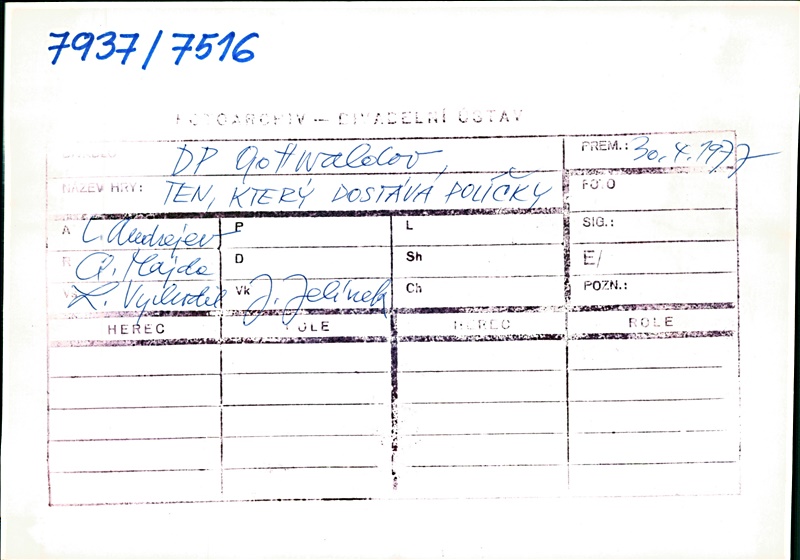 7937/7516
FOTOARCHIV — DIVADELNÍ ÚSTAV
DIVADLO DP Gottwaldov, PREM.: 30.4.1977
NÁZEV HRY: TEN, KTERÝ DOSTÁVÁ POLÍČKY FOTO
A L. Andrejev P L SIG.:
R A. Hajda D Sh E/
V L. Vychodil Vk J. Jelínek Ch POZN.:
HEREC ROLE HEREC ROLE